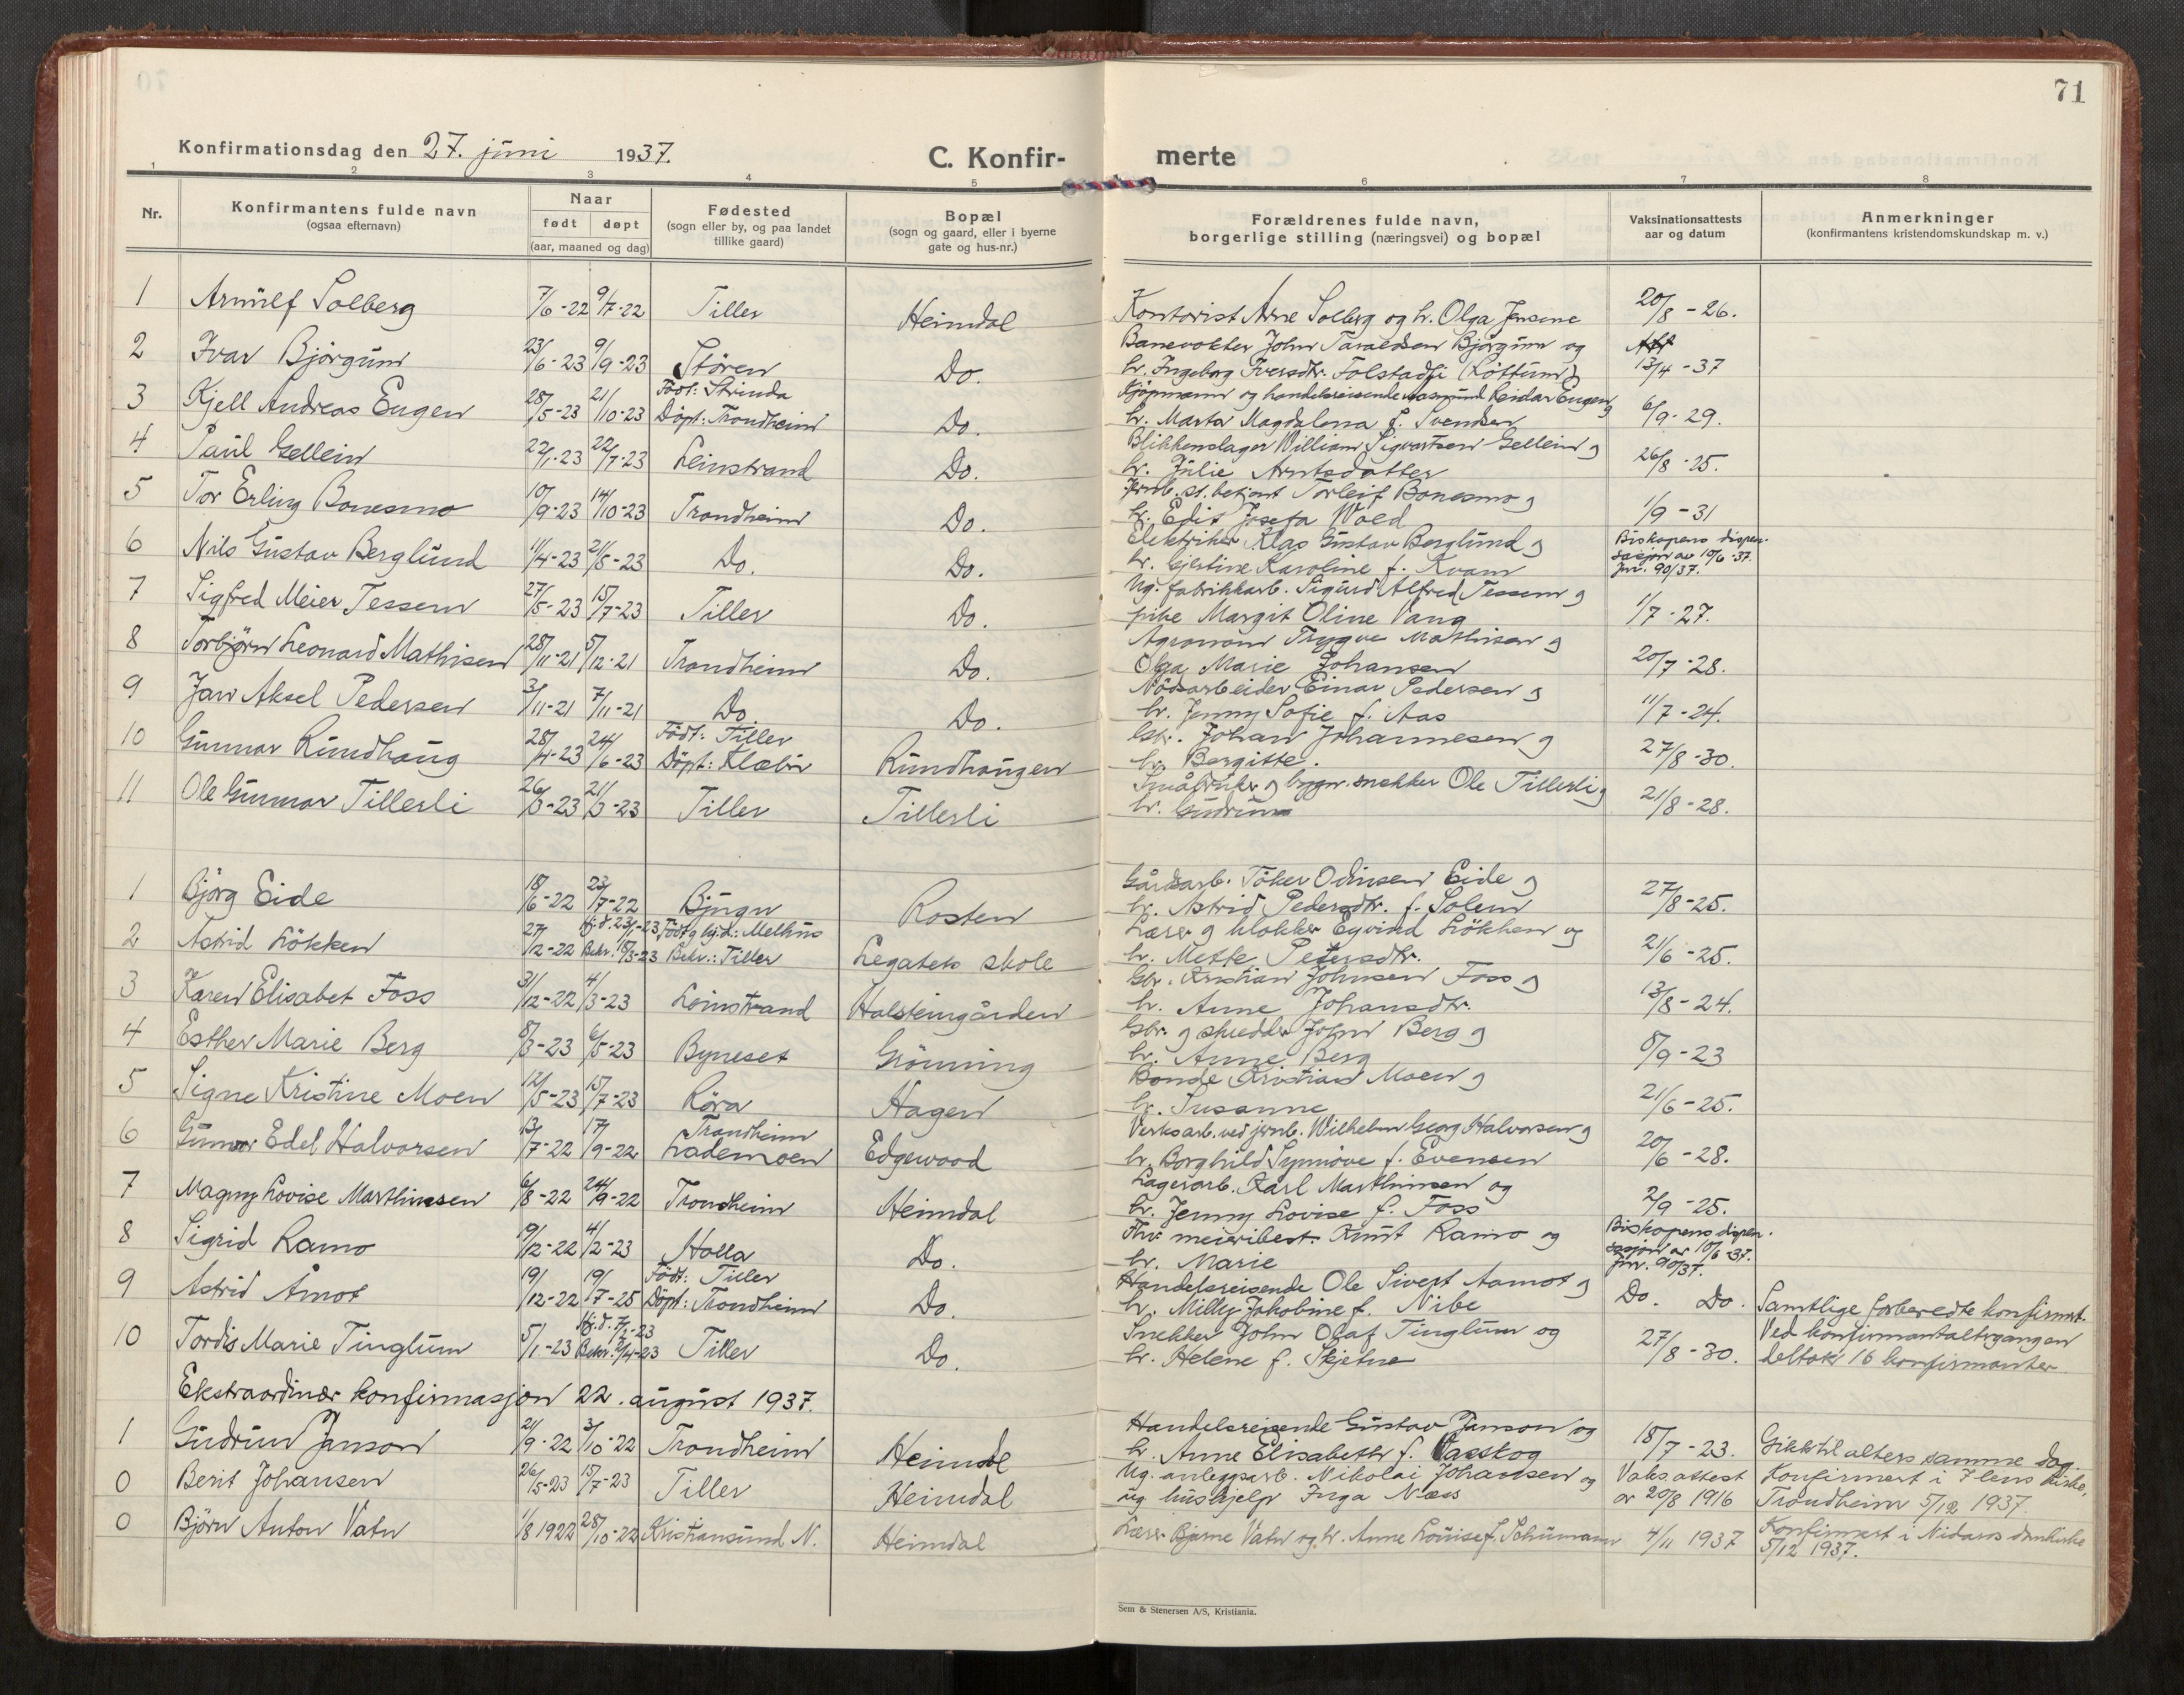 71
Konfirmationsdag den 27. juni 1937.
C. Konfir-merte
1 2 3 4 5 6 7 8
Nr.
Konfirmantens fulde navn
(ogsaa efternavn)
Naar
født døpt
(aar, maaned og dag)
Fødested
(sogn eller by, og paa landet
tillike gaard)
Bopæl
(sogn og gaard, eller i byerne
gate og hus-nr.)
Forældrenes fulde navn,
borgerlige stilling (næringsvei) og bopæl
Vaksinationsattests
aar og datum
Anmerkninger
(konfirmantens kristendomskundskap m. v.)
1 Arnulf Solberg 7/6-22 9/7-22 Tiller Heimdal Kontorist Arne Solberg og h. Olga Jensine 20/8-26.
2 Ivar Bjørgum 23/6-23 9/9-23 Støren Do. Banevokter John Taraldsen Bjørgum og
h. Ingeborg Iversdtr. Folstadli (Løttum) 13/4-37
3 Kjell Andreas Eugen 28/5-23 21/10-23 Født: Strinda
Døpt: Trondheim Do. Kjøpmann og handelsreisende Aasmund Reidar Eugen og
h. Marta Magdalena f. Svendsen 6/9-29.
4 Paul Gellein 22/1-23 22/7-23 Leinstrand Do. Blikkenslager William Sigvartsen Gellein og
h. Julie Arntsdatter 26/8-25.
5 Tor Erling Bonesmo 10/9-23 14/10-23 Trondheim Do. Jernb. st. betjent Torleif Bonesmo og
h. Edit Josefa Wold 1/9-31
6 Nils Gustav Berglund 11/4-23 21/5-23 Do. Do. Elektriker Klas Gustav Berglund og
h. Gjertine Karoline f. Kvam Biskopens dispen-
sasjon av 10/6-37.
Jnr. 90/37.
7 Sigfred Meier Tessem 27/5-23 15/7-23 Tiller Do. Ug. fabrikkarb. Sigurd Alfred Tessem og
pike Margit Oline Vang 1/7-27.
8 Torbjørn Leonard Mathisen 28/11-21 5/12-21 Trondheim Do. Agronom Trygve Mathisen og
Olga Marie Johansen 20/7-28.
9 Jan Aksel Pedersen 3/11-21 7/11-21 Do. Do. Nødsarbeider Einar Pedersen og
h. Jenny Sofie f. Aas 11/7-24.
10 Gunnar Rundhaug 28/4-23 24/6-23 Født: Tiller
Døpt: Klæbu Rundhaugen Gbr. Johan Johannesen og
h. Bergitte. 27/8-30.
11 Ole Gunnar Tillerli 26/3-23 21/3-23 Tiller Tillerli Småbruker og bygn. snekker Ole Tillerli og
h. Gudrun 21/8-28.
1 Bjørg Eide 18/6-22 23/7-22 Bjugn Rosten Gårdsarb. Tóker Odinsen Eide og
h. Astrid Pedersdtr. f. Solem 27/8-25.
2 Astrid Løkken 27/12-22 Hj.d. 23/1-23
Bekr. 18/3-23 Født og hj.d.: Melhus
Bekr.: Tiller Legatets skole Lærer og klokker Eyvind Løkken og
h. Mette Petersdtr. 21/6-25.
3 Karen Elisabet Foss 31/12-22 4/3-23 Leinstrand Halsteingården Gbr. Kristian Johnsen Foss og
h. Anne Johansdtr. 13/8-24.
4 Esther Marie Berg 8/3-23 6/5-23 Byneset Grønning Gbr. og skredder John Berg og
h. Anne Berg 8/9-23
5 Signe Kristine Moen 12/5-23 15/7-23 Røra Hagen Bonde Kristian Moen og
h. Susanne 21/6-25.
6 Gunvor Edel Halvorsen 13/7-22 17/9-22 Trondheim
Lademoen Edgewood Verksarb. ved jernb. Wilhelm Georg Halvorsen og
h. Borghild Synnøve f. Evensen 20/6-28.
7 Magny Lovise Marthinsen 6/8-22 24/9-22 Trondheim Heimdal Lagerarb. Karl Marthinsen og
h. Jenny Lovise f. Foss 2/9-25.
8 Sigrid Ramo 19/12-22 4/2-23 Holla Do. Fhv. meieribest. Knut Ramo og
h. Marie Biskopens dispen-
sasjon av 10/6-37.
Jnr. 90/37.
9 Astrid Åmot 19/12-22 19/7-25 Født: Tiller
Døpt: Trondheim Do. Handelsreisende Ole Sivert Aamot og
h. Milly Jakobine f. Nibe Do. Do. Samtlige forberedte konfirmt.
10 Tordis Marie Tinglum 5/1-23 Hj.d. 7/1-23
Bekr. 2/4-23 Tiller Do. Snekker John Olaf Tinglum og
h. Helene f. Skjetne 27/8-30. Ved konfirmantaltergangen
deltok 16 konfirmanter
Ekstraordinær konfirmasjon 22. august 1937.
1 Gudrun Janson 21/9-22 3/10-22 Trondheim Heimdal Handelsreisende Gustav Janson og
h. Anne Elisabeth f. Vasskog 18/7-23. Gikk til alters samme dag.
0 Berit Johansen 26/5-23 15/7-23 Tiller Heimdal Ug. anleggsarb. Nikolai Johansen og
ug. hushjelp Inga Næss Vaks.attest
av 20/8 1916 Konfirmert i Ilens kirke,
Trondheim 5/12 1937.
0 Bjørn Anton Vatn 1/8 1922 28/10-22 Kristiansund N. Heimdal Lærer Bjarne Vatn og h. Anne Louise f. Schumann 4/11 1937 Konfirmert i Nidaros domkirke
5/12 1937.
Sem & Stenersen A/S, Kristiania.